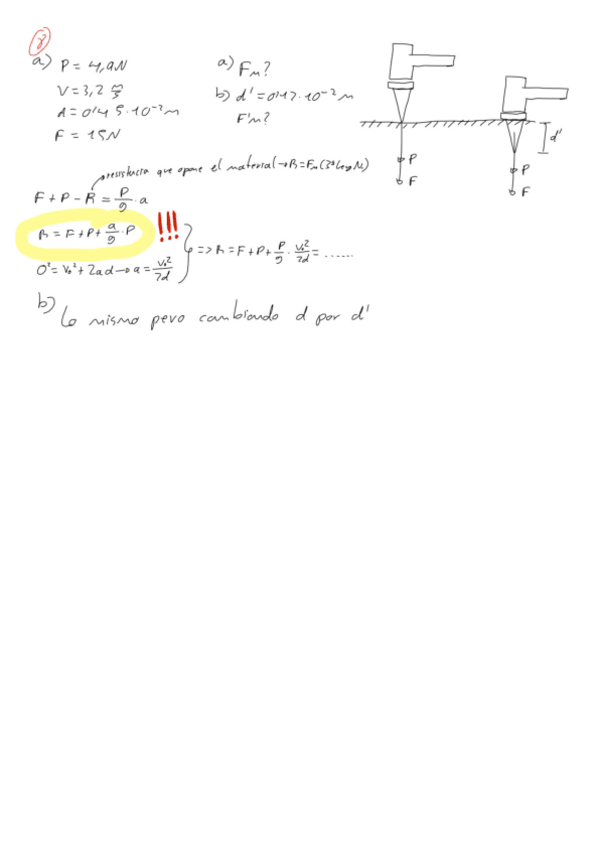 8
a) P = 4,9N
V = 3,2 m/s
d = 0'45·10⁻² m
F = 15N
a) Fm?
b) d' = 0'12·10⁻² m
F'm?
P
F
P
F
d'
resistencia que opone el material → R = Fm (3ª Ley N)
F + P - R = P/g · a
R = F + P + a/g · P !!!
0² = V₀² + 2ad → a = V₀²/2d
=> R = F + P + P/g · V₀²/2d = ......
b)
Lo mismo pero cambiando d por d'